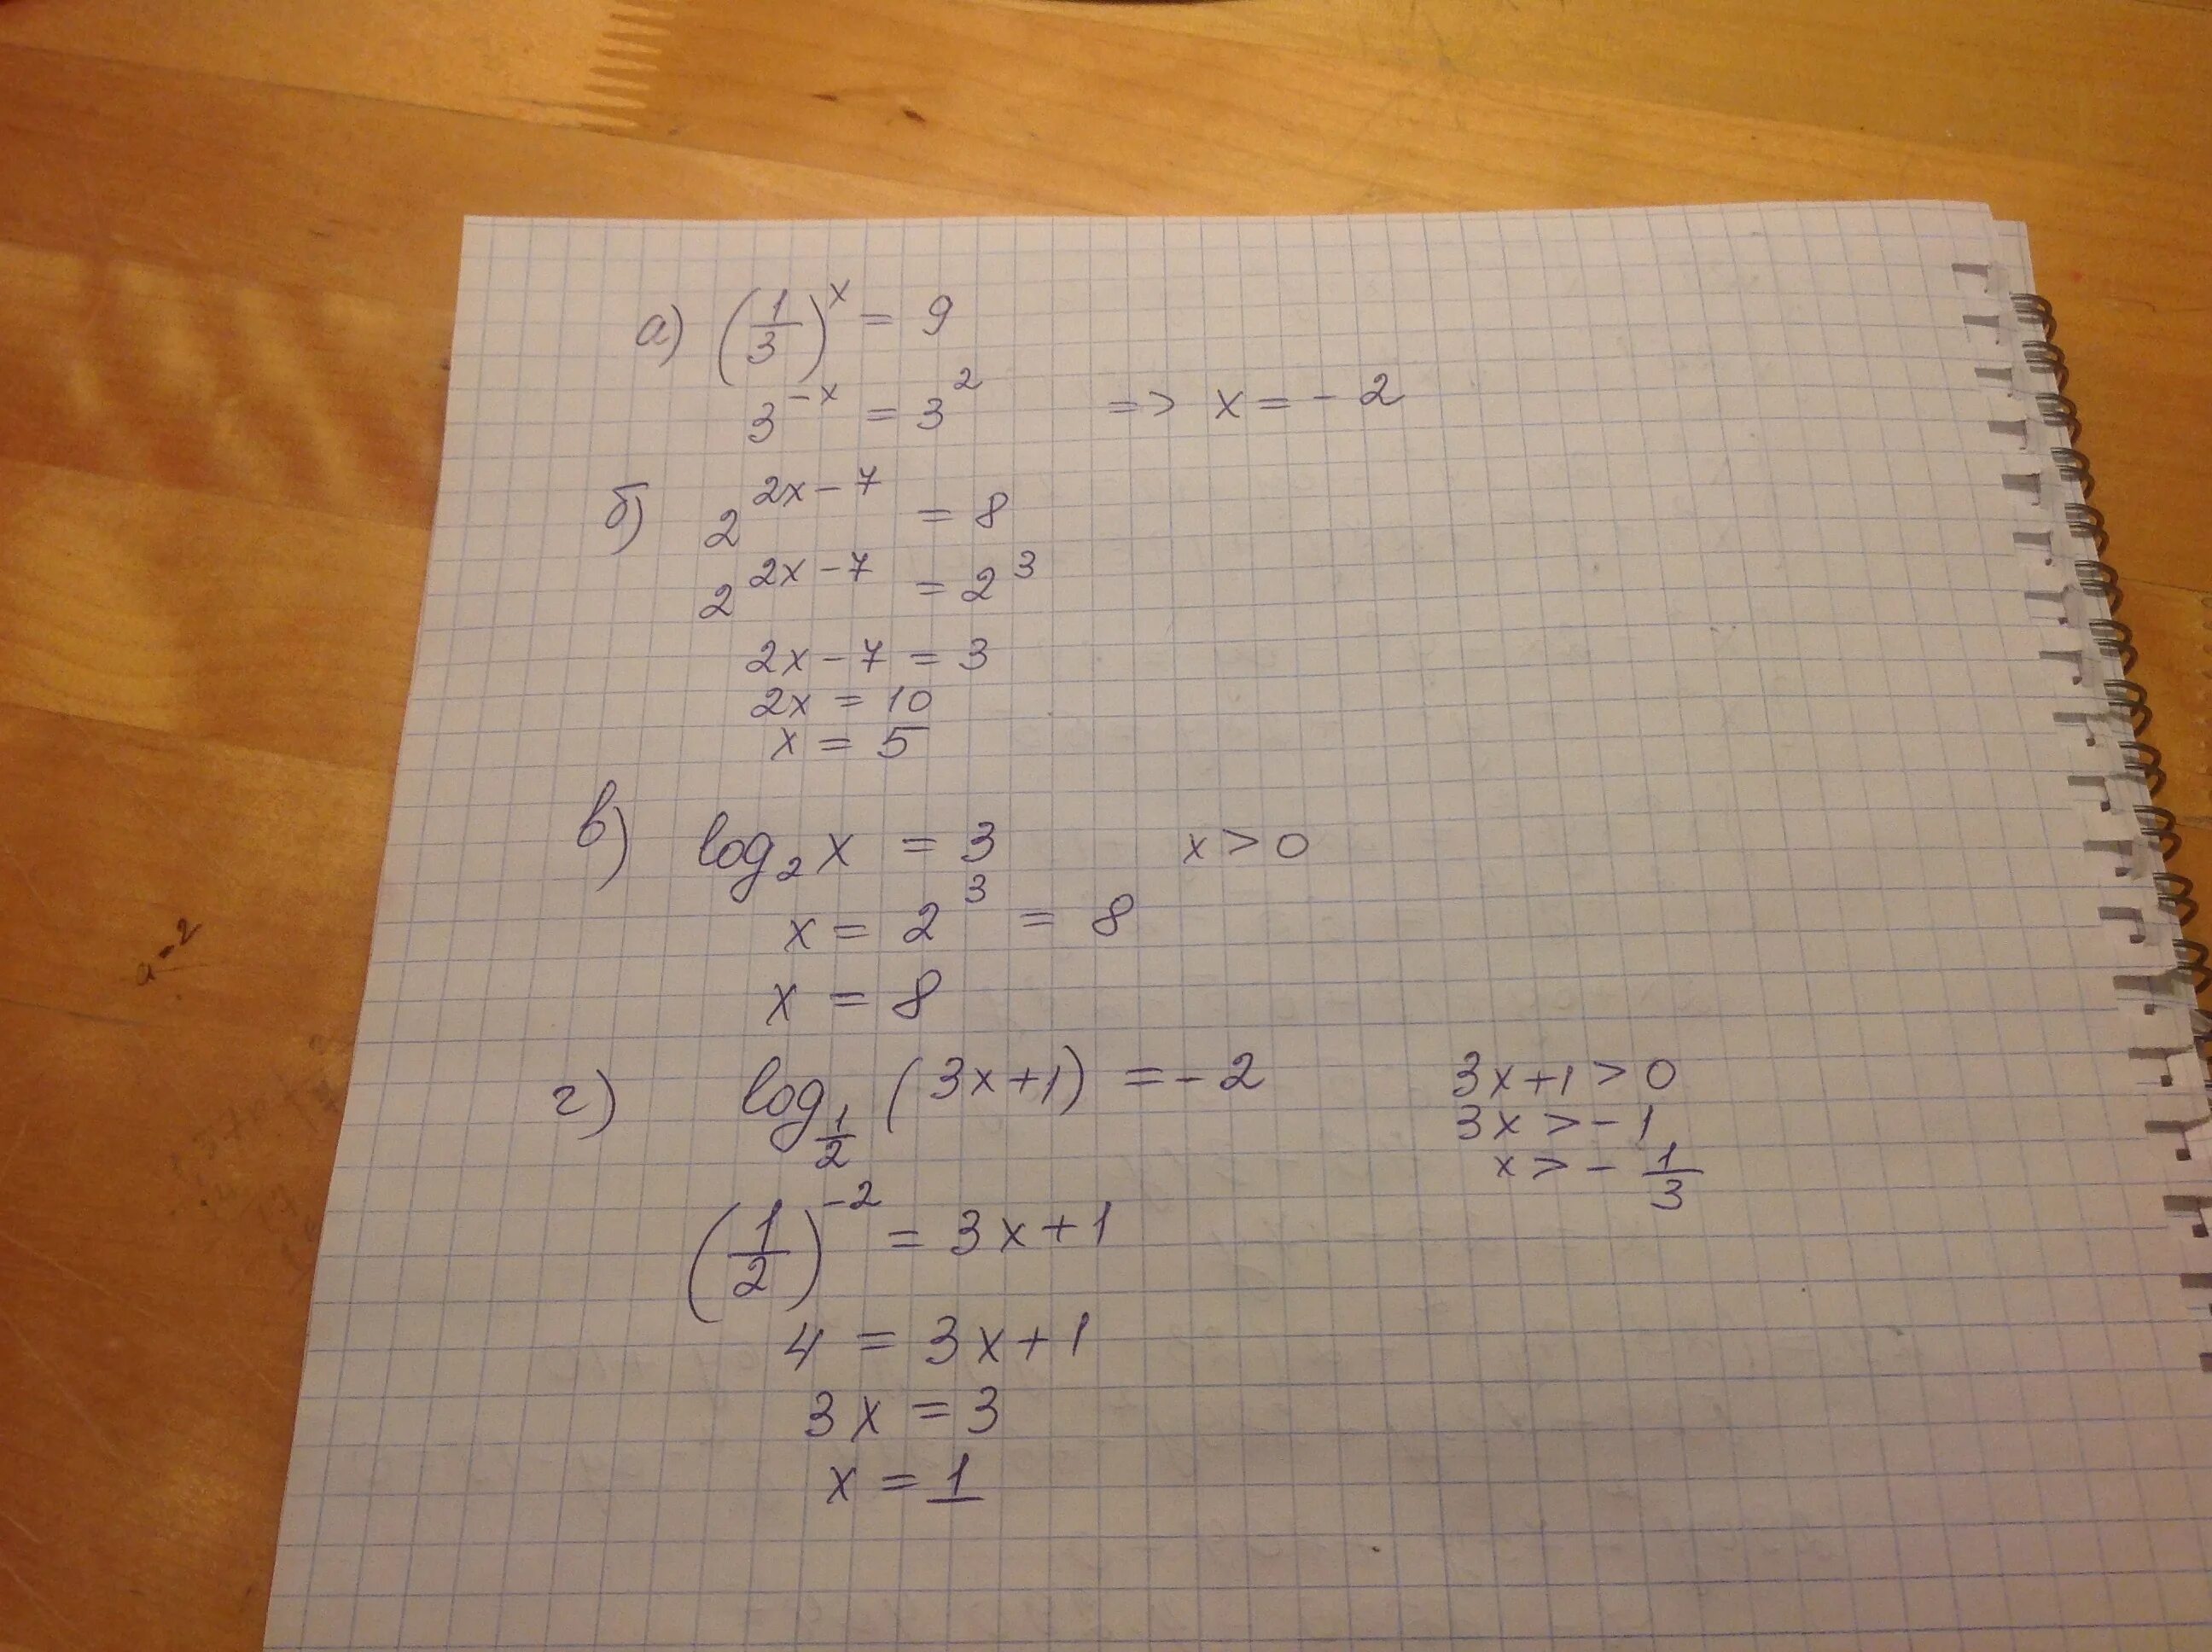 а) (1/3)^x = 9
3^(-x) = 3^2 => x = -2
б) 2^(2x-7) = 8
2^(2x-7) = 2^3
2x-7 = 3
2x = 10
x = 5
в) log_2 x = 3 x > 0
x = 2^3 = 8
x = 8
г) log_(1/2) (3x+1) = -2 3x+1 > 0
3x > -1
x > - 1/3
(1/2)^(-2) = 3x+1
4 = 3x+1
3x = 3
x = 1
a^-2